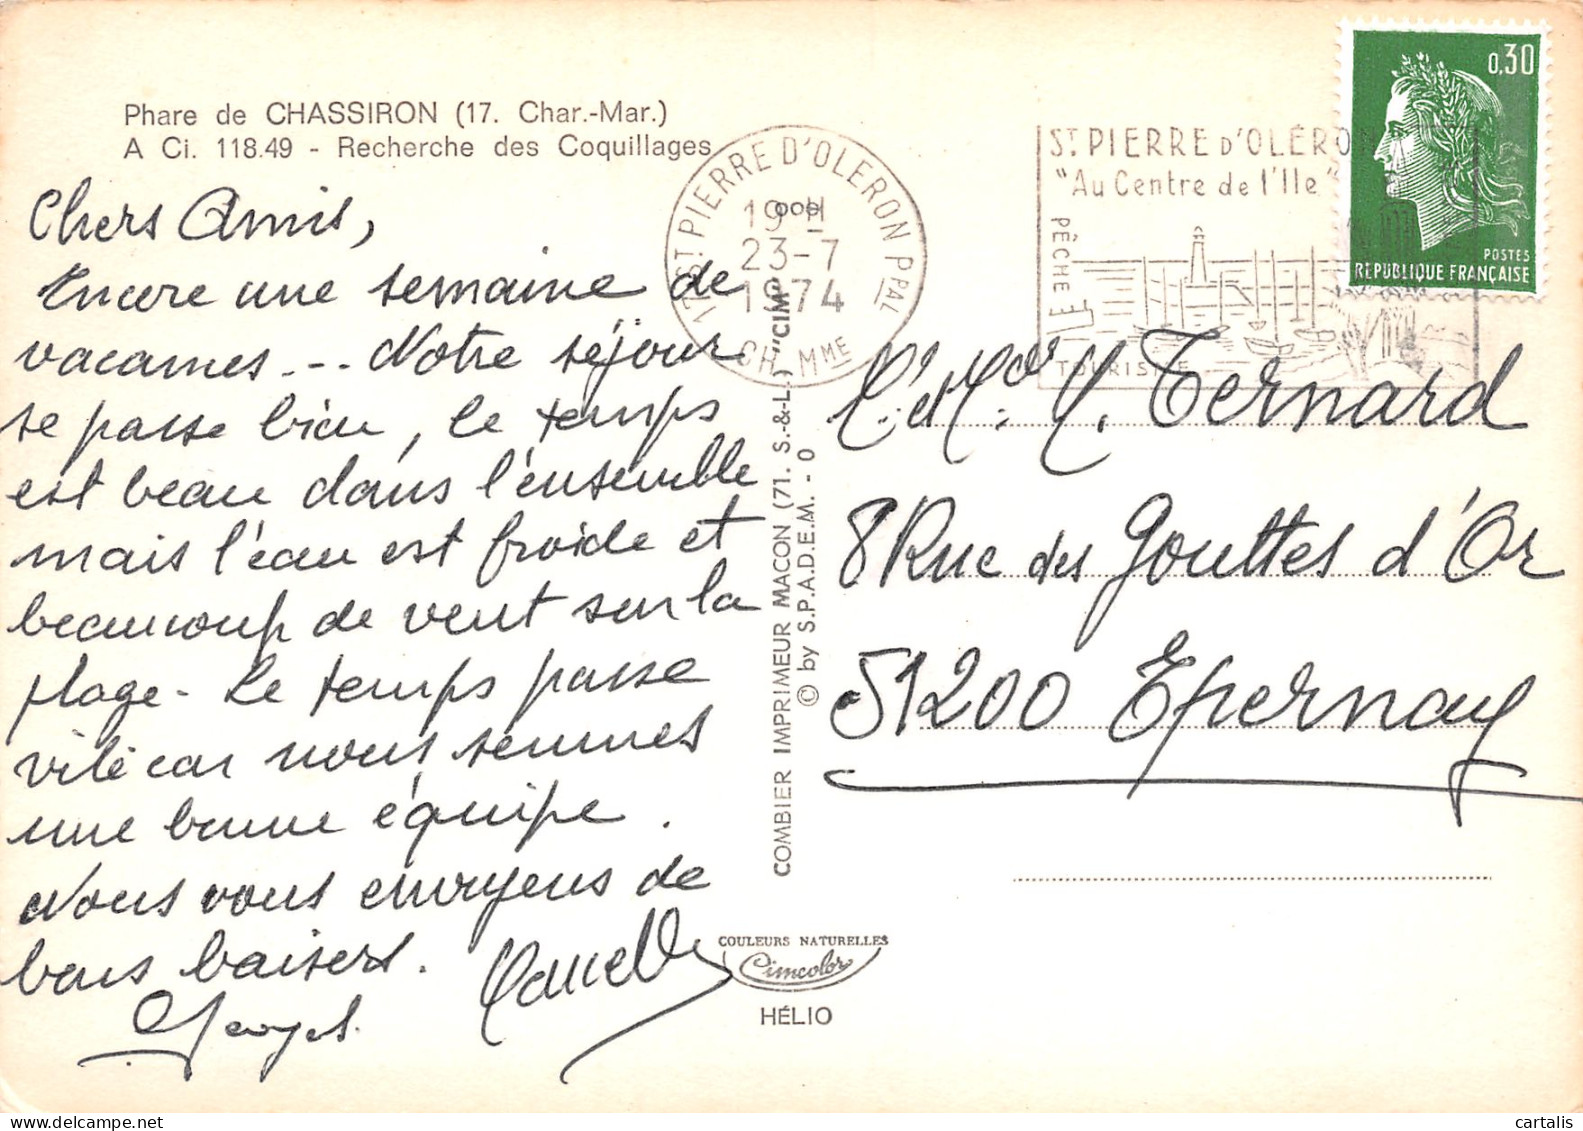 Phare de CHASSIRON (17. Char.-Mar.)
A Ci. 118.49 - Recherche des Coquillages
Chers Amis,
Encore une semaine de
vacances... Notre séjour
se passe bien, le temps
est beau dans l'ensemble
mais l'eau est froide et
beaucoup de vent sur la
plage - Le temps passe
vite car nous sommes
une bonne équipe.
Nous vous envoyons de
bons baisers.
Georges
17 ST PIERRE D'OLERON PPAL
19 H
23-7
1974
CH. MME
ST PIERRE D'OLERON
"Au Centre de l'Ile"
PÊCHE
TOURISME
0,30
POSTES
REPUBLIQUE FRANÇAISE
COMBIER IMPRIMEUR MACON (71. S.-&-L.) "CIM"
© by S.P.A.D.E.M. - 0
Ternard
8 Rue des Gouttes d'Or
51200 Epernay
COULEURS NATURELLES
Cimcolor
HÉLIO
cartalis